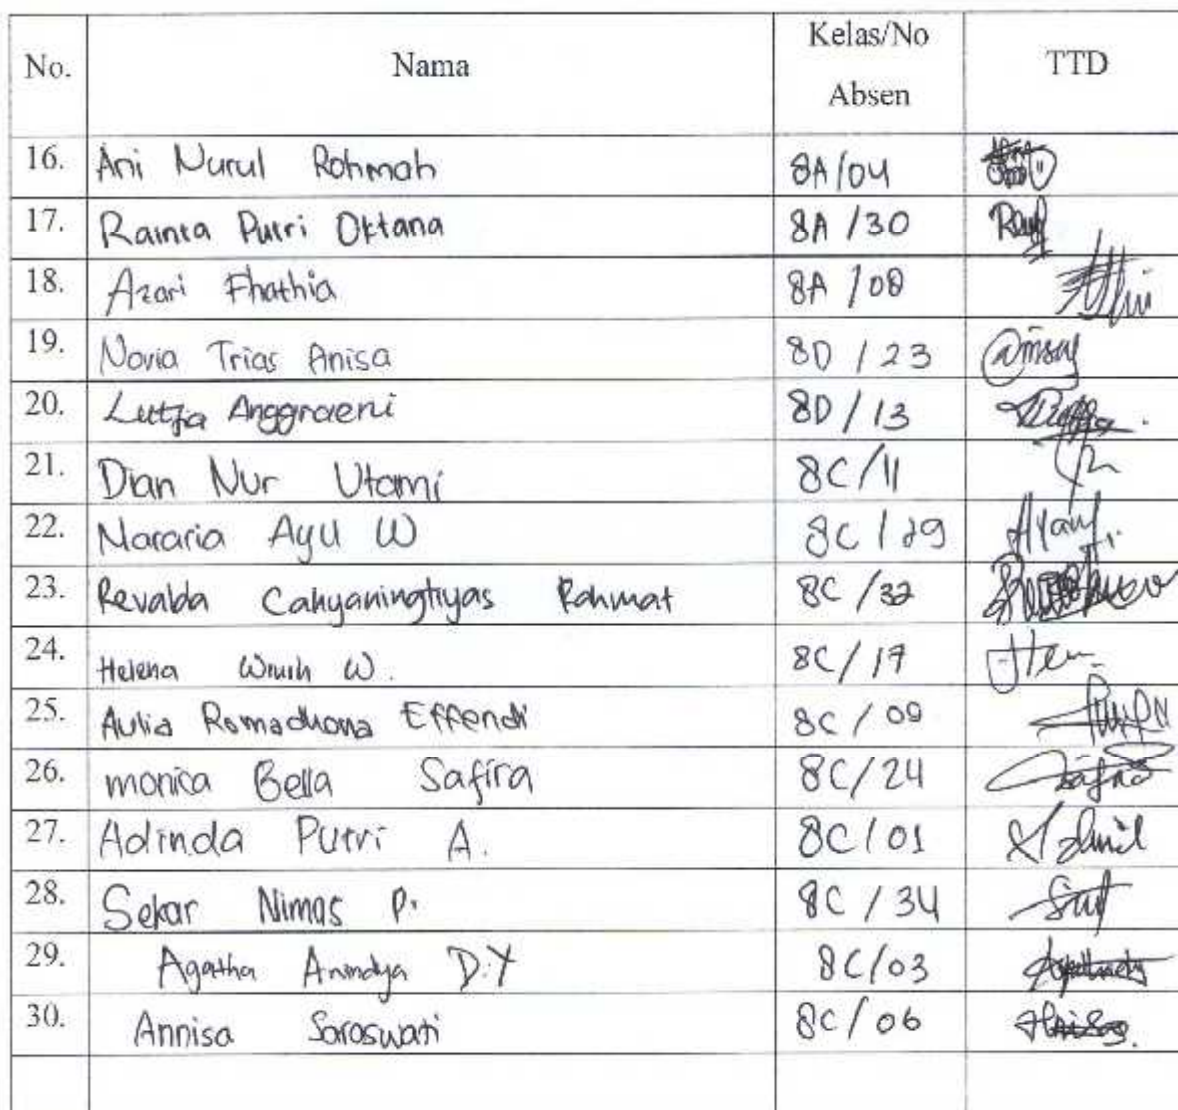 No. Nama Kelas/No Absen TTD
16. Ani Nurul Rohmah 8A/04
17. Rainta Putri Oktana 8A /30
18. Azari Fhathia 8A /08
19. Novia Trias Anisa 8D / 23
20. Lutfia Anggraeni 8D / 13
21. Dian Nur Utami 8C /11
22. Nararia Ayu W 8C / 29
23. Revalda Cahyaningtiyas Rahmat 8C /32
24. Helena W. 8C / 17
25. Aulia Romadhona Effendi 8C / 09
26. monica Bella Safira 8C/24
27. Adinda Putri A. 8C/01
28. Sekar Nimas P. 8C / 34
29. Agatha Anindya D.Y 8C/03
30. Annisa Saraswati 8C / 06